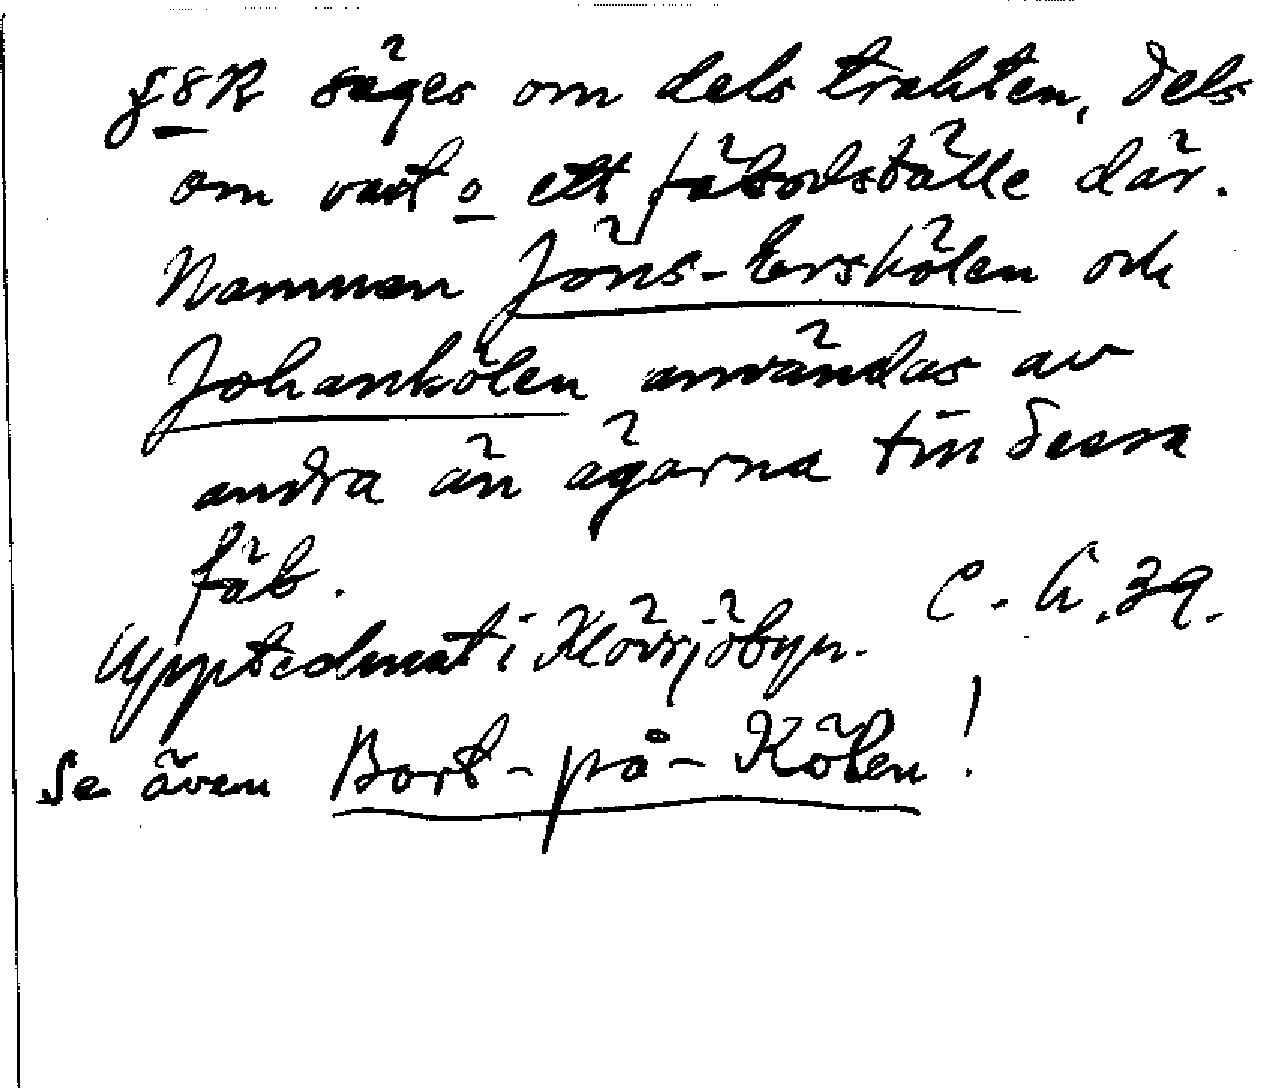 säges om dels trakten, dels
om vart o ett fäbodställe där.
Namnen Jöns-Erskölen och
Johankölen användas av
andra än ägarna till dessa
fäb.
C. A. 39.
Upptecknat i Klövsjöbyn.
Se även Bort-på-Kölen!